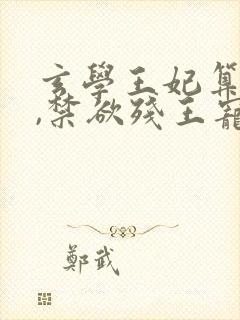 玄學王妃算
,禁欲殘王寵
鄭武